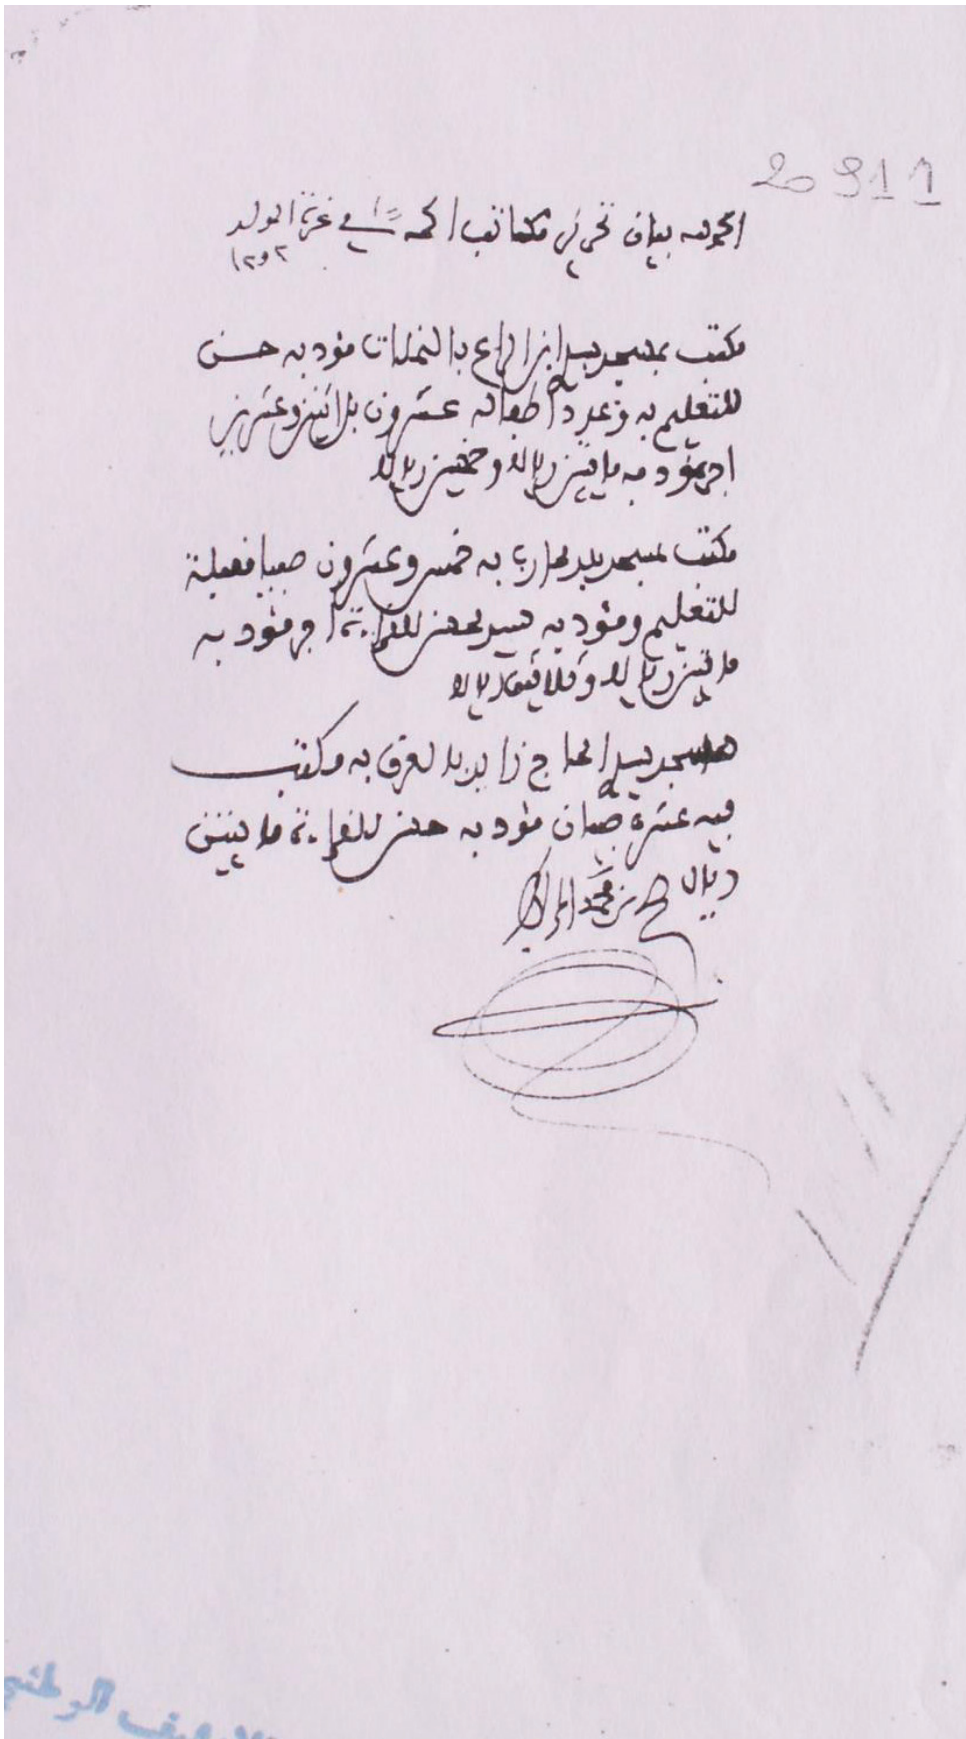 20911
الحمد لله بيان تحرير مكاتب الحمة في غرة المولد
١٢٩٢
مكتب بمسجد سيدي ابن الراع بالنملات مؤدبه حسن
للتعليم به وعدد أطفاله عشرون بل اثنين وعشرين
اجر مؤدبه مايتين ريالا وخمسين ريالا
مكتب بمسجد به خمس وعشرون صبيا قبيلة
للتعليم ومؤدبه سيد لحسن للقراءة اجر مؤدبه
مايتين ريالا وثلاثين ريالا
مسجد سيدي الحاج زايد به مكتب
فيه عشرة صبيان مؤدبه حسن للقراءة مايتين
ريال محمد
الارشيف الوطني